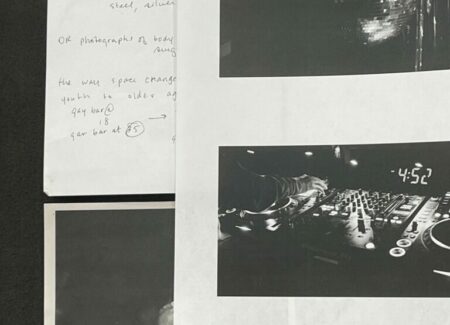 steel, silver
OR photographs of body
the way space change
youth to older ag
gay bar @
18
gay bar at 85
-4:52